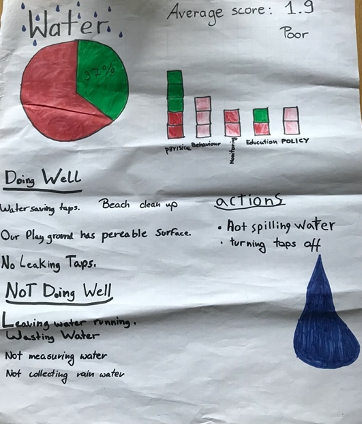 Water
Average score: 1.9
Poor
37%
Physical
Behaviour
Monitoring
Education
POLICY
Doing Well
Water saving taps.
Beach clean up
Our Play ground has pereable Surface.
No Leaking Taps.
actions
• Not spilling water
• turning taps off
NoT Doing Well
Leaving water running.
Wasting Water
Not measuring water
Not collecting rain water